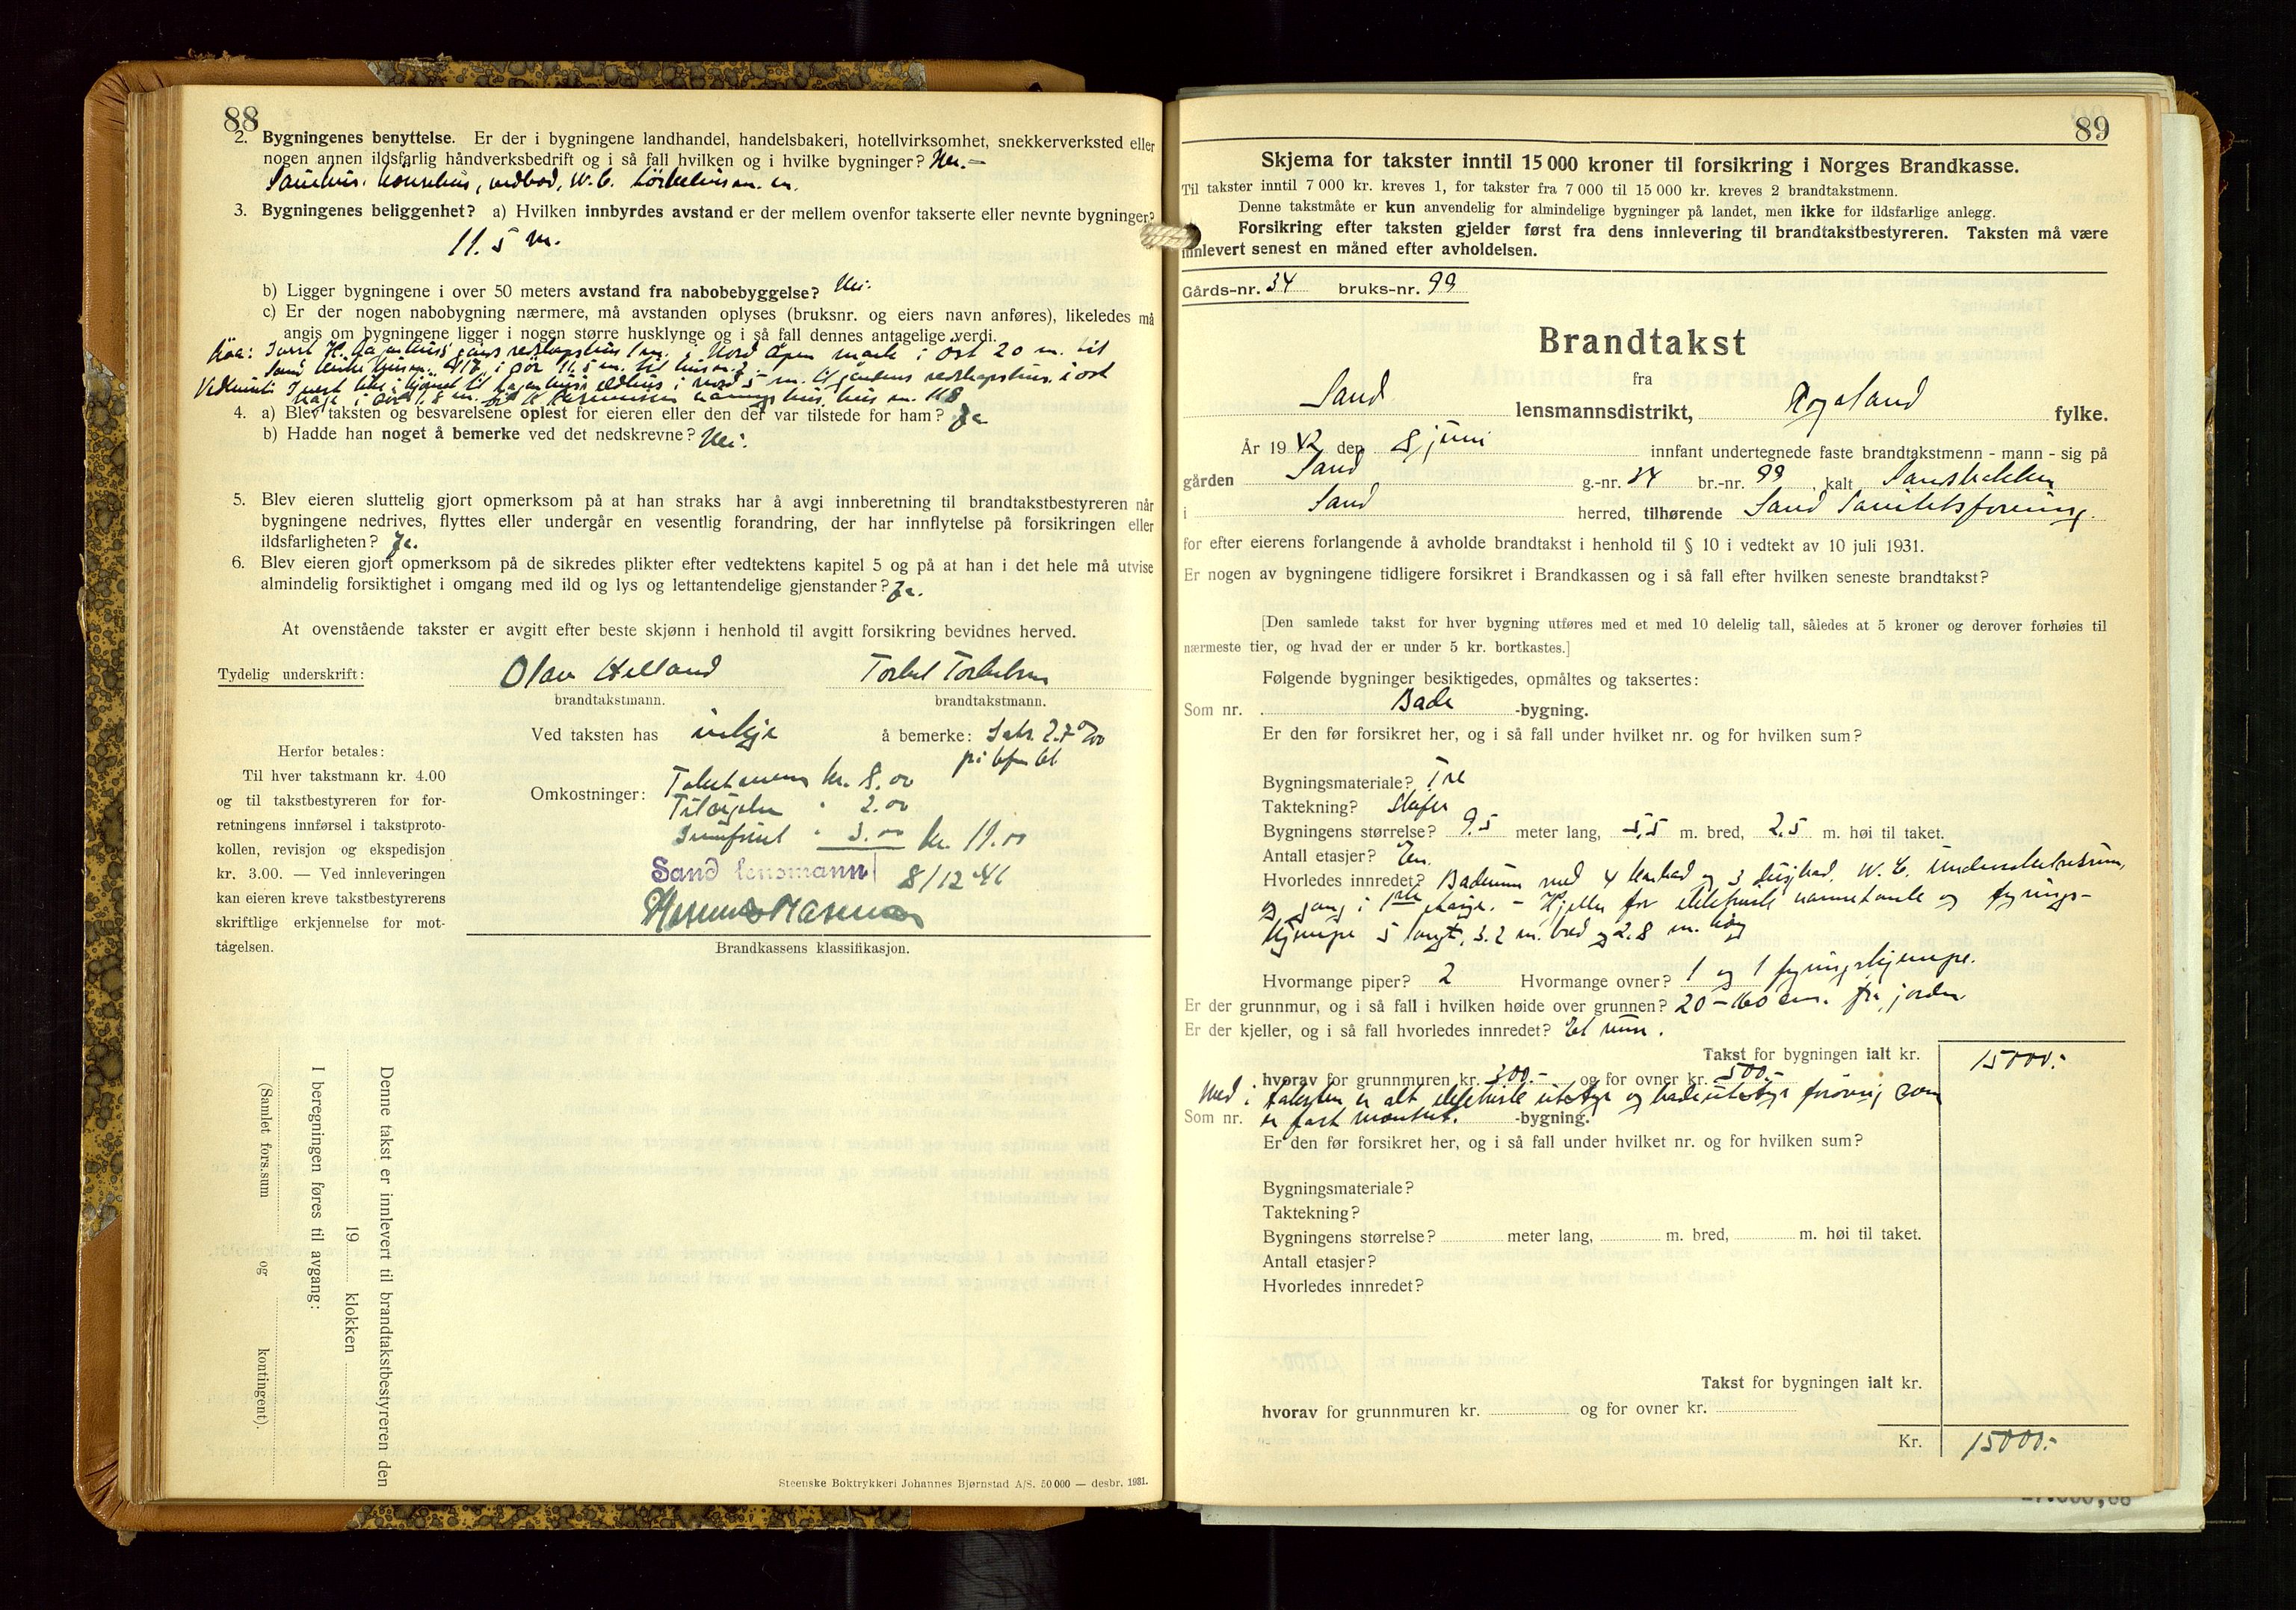 88
2. Bygningenes benyttelse. Er der i bygningene landhandel, handelsbakeri, hotellvirksomhet, snekkerverksted eller
nogen annen ildsfarlig håndverksbedrift og i så fall hvilken og i hvilke bygninger? Nei.-
vedbod, W.C.
3. Bygningenes beliggenhet? a) Hvilken innbyrdes avstand er der mellem ovenfor takserte eller nevnte bygninger?
11.5 m.
b) Ligger bygningene i over 50 meters avstand fra nabobebyggelse? Nei.
c) Er der nogen nabobygning nærmere, må avstanden oplyses (bruksnr. og eiers navn anføres), likeledes må
angis om bygningene ligger i nogen større husklynge og i så fall dennes antagelige verdi.
4. a) Blev taksten og besvarelsene oplest for eieren eller den der var tilstede for ham? Ja
b) Hadde han noget å bemerke ved det nedskrevne? Nei.
5. Blev eieren sluttelig gjort opmerksom på at han straks har å avgi innberetning til brandtakstbestyreren når
bygningene nedrives, flyttes eller undergår en vesentlig forandring, der har innflytelse på forsikringen eller
ildsfarligheten? Ja.
6. Blev eieren gjort opmerksom på de sikredes plikter efter vedtektens kapitel 5 og på at han i det hele må utvise
almindelig forsiktighet i omgang med ild og lys og lettantendelige gjenstander? Ja.
At ovenstående takster er avgitt efter beste skjønn i henhold til avgitt forsikring bevidnes herved.
Tydelig underskrift: Olav Helland
brandtakstmann. brandtakstmann.
Ved taksten has inkje å bemerke:
Herfor betales:
Til hver takstmann kr. 4.00
og til takstbestyreren for for-
retningens innførsel i takstproto-
kollen, revisjon og ekspedisjon
kr. 3.00. — Ved innleveringen
kan eieren kreve takstbestyrerens
skriftlige erkjennelse for mot-
tagelsen.
Omkostninger: kr. 8.00
2.00
3.00 kr.
Sand lensmann 8/12
Brandkassens klassifikasjon.
Denne takst er innlevert til brandtakstbestyreren den
19 klokken
I beregningen føres til avgang:
(Samlet fors.sum og kontingent).
Steenske Boktrykkeri Johannes Bjørnstad A/S. 50 000 — desbr. 1931.
89
Skjema for takster inntil 15 000 kroner til forsikring i Norges Brandkasse.
Til takster inntil 7 000 kr. kreves 1, for takster fra 7 000 til 15 000 kr. kreves 2 brandtakstmenn.
Denne takstmåte er kun anvendelig for almindelige bygninger på landet, men ikke for ildsfarlige anlegg.
Forsikring efter taksten gjelder først fra dens innlevering til brandtakstbestyreren. Taksten må være
innlevert senest en måned efter avholdelsen.
Gårds-nr. 34 bruks-nr. 99
Brandtakst
fra
Sand lensmannsdistrikt, Rogaland fylke.
År 1942 den 8 juni innfant undertegnede faste brandtakstmenn - mann - sig på
gården Sand g.-nr. 34 br.-nr. 99, kalt Sandsbakken
i Sand herred, tilhørende Sand Sanitetsforening.
for efter eierens forlangende å avholde brandtakst i henhold til § 10 i vedtekt av 10 juli 1931.
Er nogen av bygningene tidligere forsikret i Brandkassen og i så fall efter hvilken seneste brandtakst?
[Den samlede takst for hver bygning utføres med et med 10 delelig tall, således at 5 kroner og derover forhøies til
nærmeste tier, og hvad der er under 5 kr. bortkastes.]
Følgende bygninger besiktigedes, opmåltes og taksertes:
Som nr. Bade -bygning.
Er den før forsikret her, og i så fall under hvilket nr. og for hvilken sum?
Bygningsmateriale? Tre
Taktekning? Skifer
Bygningens størrelse? 9.5 meter lang, 5,5 m. bred, 2.5 m. høi til taket.
Antall etasjer? En.
Hvorledes innredet? Baderum med 4 karbad og 3 dusjbad. W.C. Undersøkelsesrum,
og gang i 1ste etasje. - Kjeller for elektriske varmetanke og fyrings-
kjempe 5 langt, 3.2 m. bred og 2.8 m. høg
Hvormange piper? 2 Hvormange ovner? 1 og 1 fyringskjempe.
Er der grunnmur, og i så fall i hvilken høide over grunnen? 20 - 160 cm. fra jorden
Er der kjeller, og i så fall hvorledes innredet? Et rum.
Takst for bygningen ialt kr. 15000.-
hvorav for grunnmuren kr. 300.- og for ovner kr. 500.-
Med i taksten er alt elektriske utstyr og badeutstyr forøvrig som
Som nr. er fast montert. -bygning.
Er den før forsikret her, og i så fall under hvilket nr. og for hvilken sum?
Bygningsmateriale?
Taktekning?
Bygningens størrelse? meter lang, m. bred, m. høi til taket.
Antall etasjer?
Hvorledes innredet?
Takst for bygningen ialt kr.
hvorav for grunnmuren kr. og for ovner kr.
Kr. 15000.-